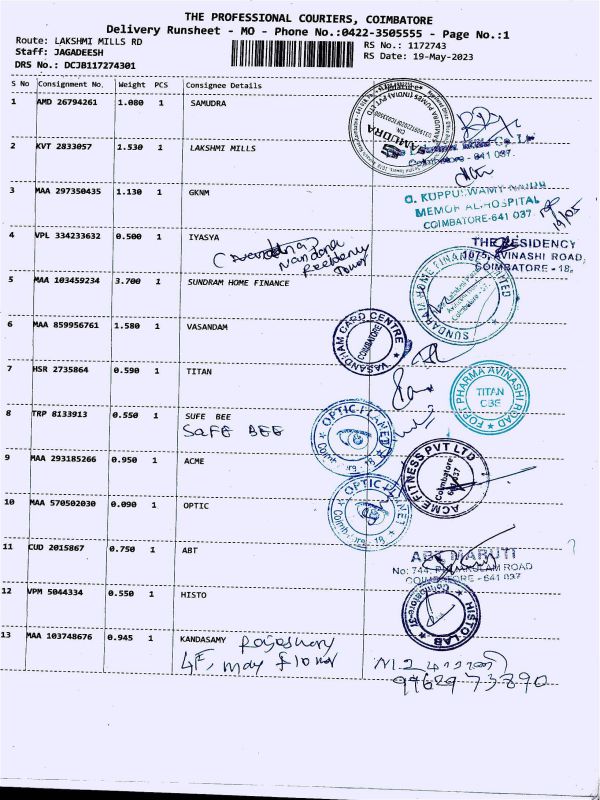 THE PROFESSIONAL COURIERS, COIMBATORE
Delivery Runsheet - MO - Phone No.:0422-3505555 - Page No.:1
Route: LAKSHMI MILLS RD
RS No.: 1172743
Staff: JAGADEESH
RS Date: 19-May-2023
DRS No.: DCJB117274301
S No Consignment No. Weight PCS Consignee Details
1 AMD 26794261 1.080 1 SAMUDRA
SAMUDRA
2 KVT 2833057 1.530 1 LAKSHMI MILLS
Coimbatore - 641 037.
3 MAA 297350435 1.130 1 GKNM
G. KUPPUSWAMY NAIDU
MEMORIAL HOSPITAL
COIMBATORE-641 037
19/05
4 VPL 334233632 0.500 1 IYASYA
Nandana
Residency
Tower
THE RESIDENCY
1075, AVINASHI ROAD,
COIMBATORE - 18.
5 MAA 103459234 3.700 1 SUNDRAM HOME FINANCE
SUNDARAM HOME FINANCE LIMITED
6 MAA 859956761 1.580 1 VASANDAM
VASANDHAM CARD CENTRE
COIMBATORE
7 HSR 2735864 0.590 1 TITAN
FOR PHARMA AVINASHI ROAD
TITAN
CBE
8 TRP 8133913 0.550 1 SUFE BEE
SAFE BEE
OPTIC-PLANET
9 MAA 293185266 0.950 1 ACME
ACME FITNESS PVT LTD
Coimbatore
641 037
10 MAA 570502030 0.090 1 OPTIC
OPTIC PLANET
11 CUD 2015867 0.750 1 ABT
ABT MARUTI
No: 744, ROAD
COIMBATORE - 641 037
12 VPM 5044334 0.550 1 HISTO
HISTO LAB
Coimbatore-37
13 MAA 103748676 0.945 1 KANDASAMY
4F, may flower